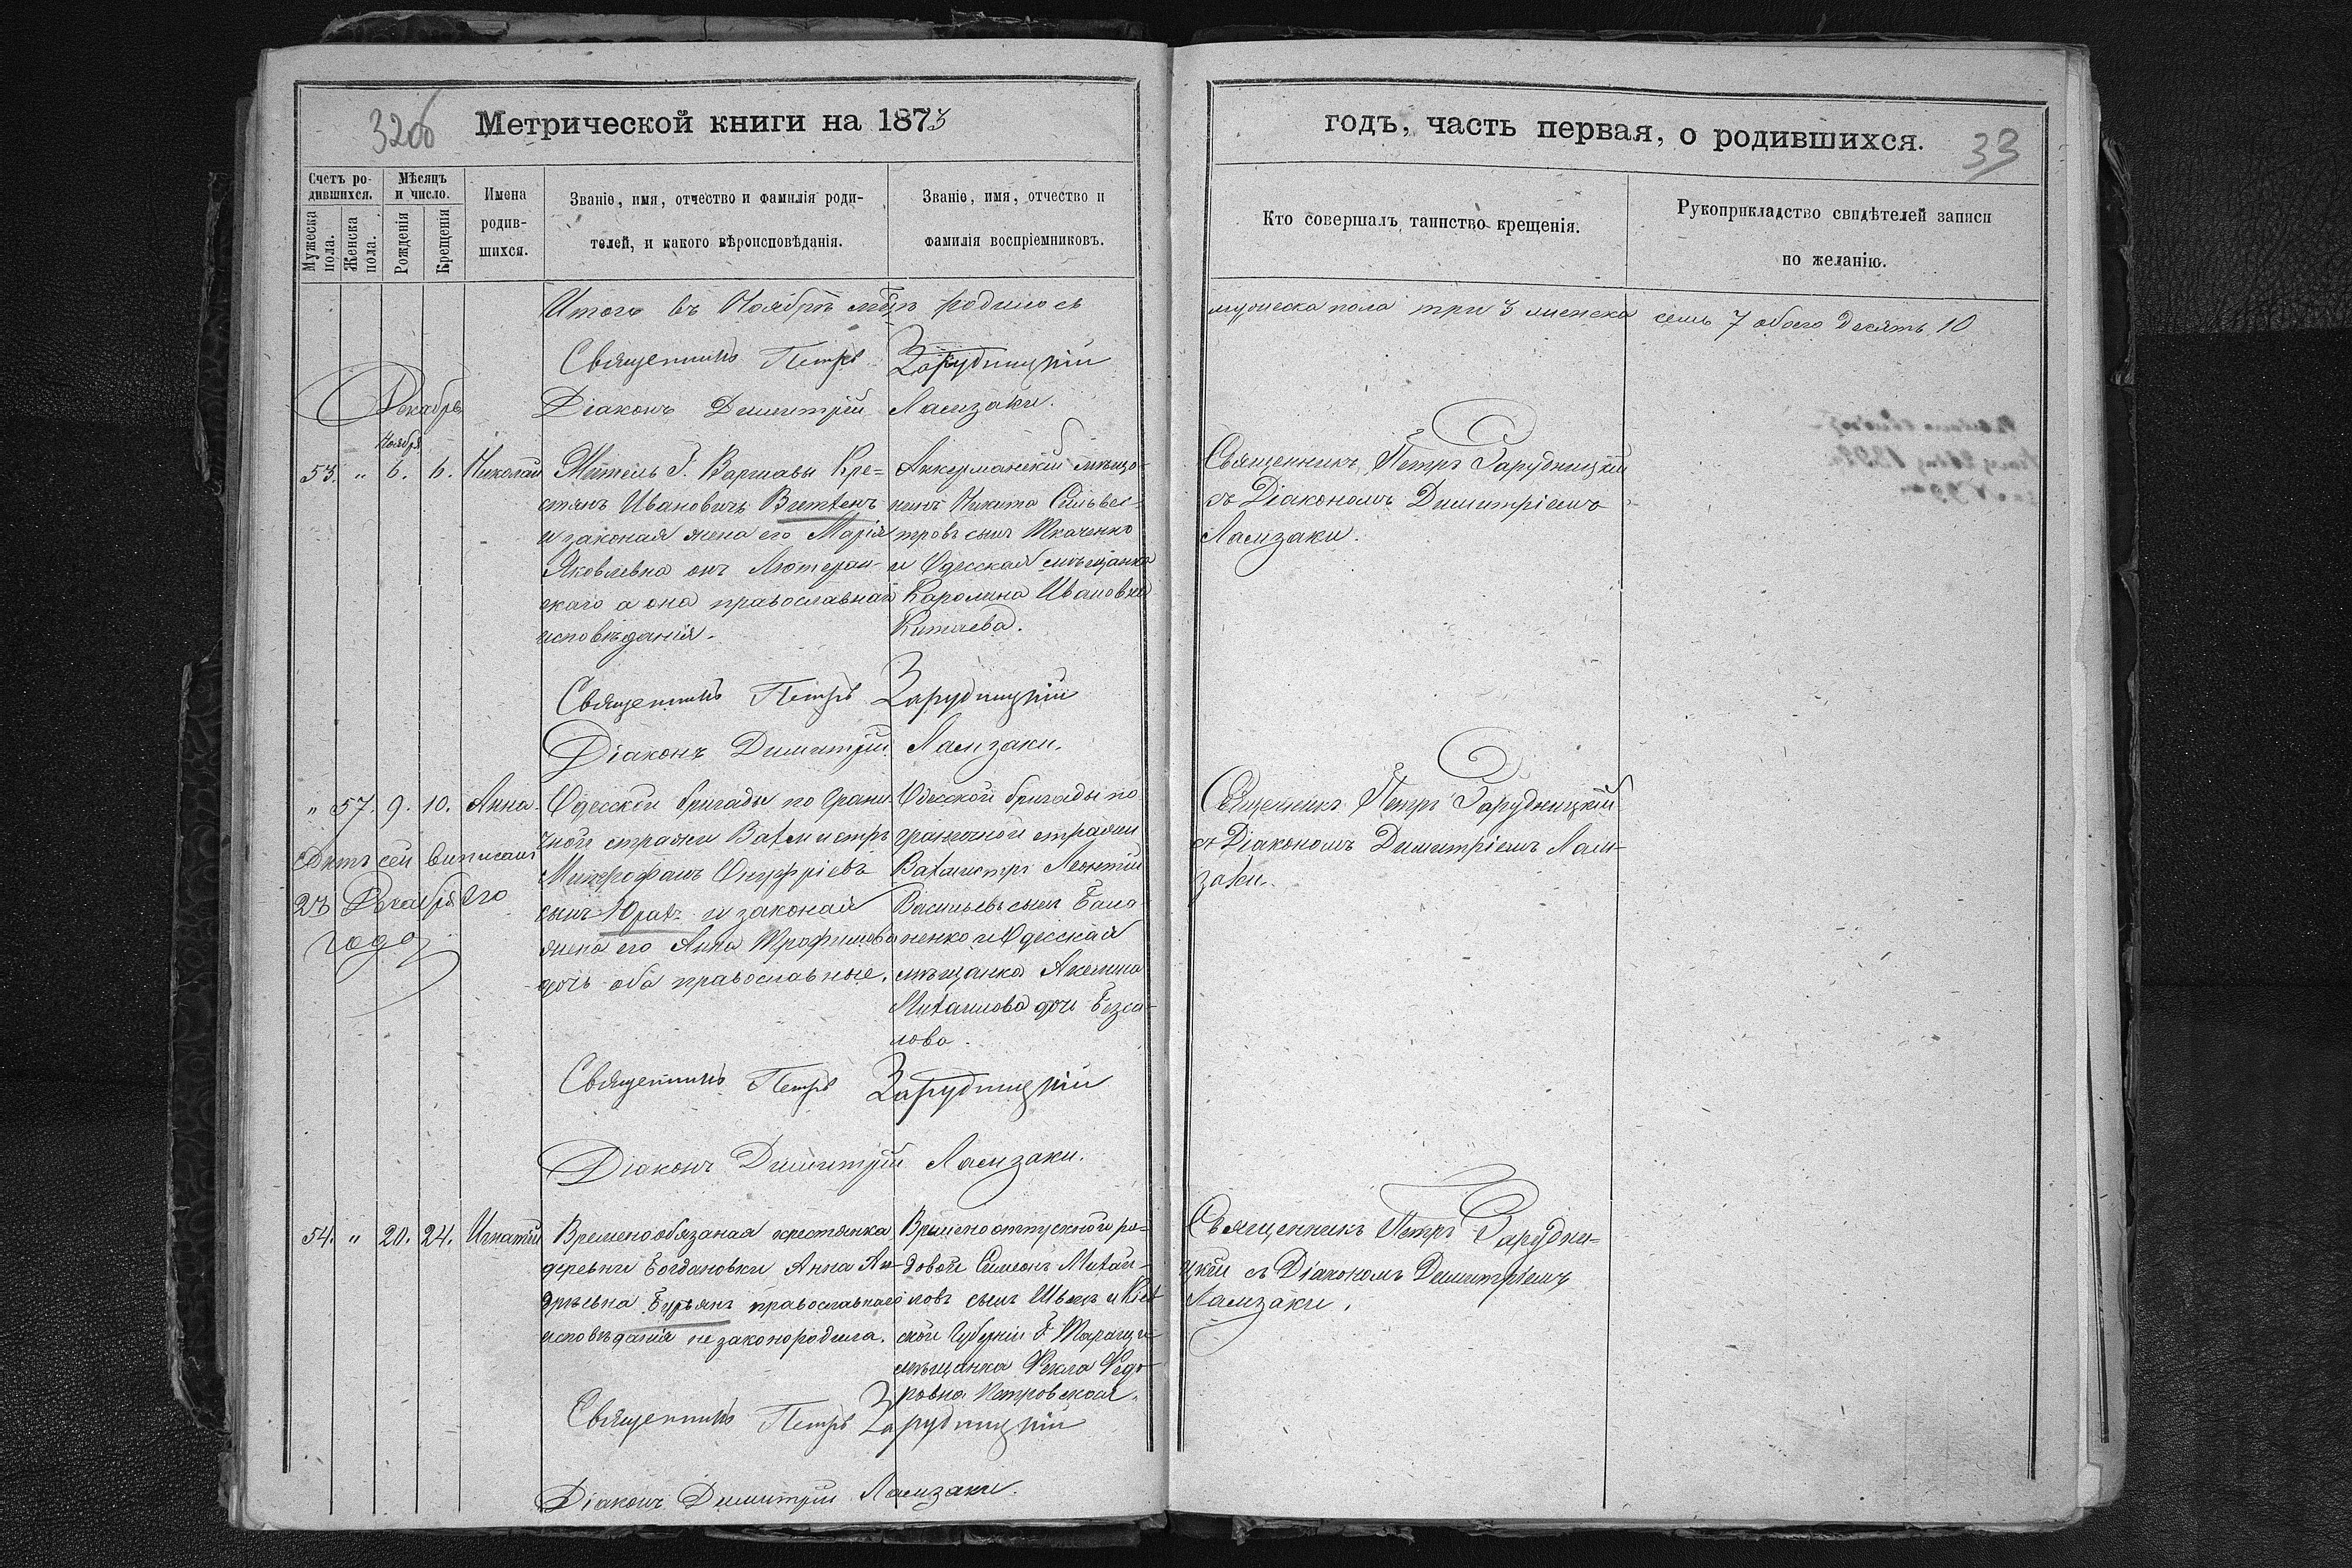 32об
Метрической книги на 1873
годъ, часть первая, о родившихся.
33
Счетъ родившихся.
Мѣсяцъ и число.
Мужеска пола.
Женска пола.
Рожденія
Крещенія
Имена родившихся.
Званіе, имя, отчество и фамилія роди-
телей, и какого вѣроисповѣданія.
Званіе, имя, отчество и
фамилія воспріемниковъ.
Кто совершалъ таинство крещенія.
Рукоприкладство свидѣтелей записи
по желанію.
Итого въ Ноябрѣ мѣцѣ родилось
мужеска пола три 3 женска семь 7 обоего десять 10
Священникъ Петръ Зарудницкій
Діаконъ Димитрій Ламзаки.
Декабрь
Ноября
53. „ 6. 6. Николай
Житель Г. Варшавы Кре-
стянъ Ивановичъ
и законая жена его Марія
Яковлевна онъ Лютеран-
скаго а она православнаго
исповѣданія.
Аккерманскій мѣща-
нинъ Никита Сильвес-
тровъ сынъ Ткаченко
и Одесская мѣщанка
Каролина Ивановна
Священникъ Петръ Зарудницкій
съ Діакономъ Димитріемъ
Ламзаки.
Священникъ Петръ Зарудницкій
Діаконъ Димитрій Ламзаки.
„ 57. 9. 10. Анна.
Актъ сей виписанъ
23 Декабр его
года
Одесской бригады по грани-
чной стражи Вахмистръ
Митрофанъ Онуфріевъ
сынъ Юрахъ и законая
жена его Анна Трофимова
дочь оба православные.
Одесской бригады по
граничной стражи
Вахмистръ Леонтій
Васильевъ сынъ Бана-
ненко и Одесская
мѣщанка Акелина
Михаилова дочь Безса-
лова.
Священникъ Петръ Зарудницкій
съ Діакономъ Димитріемъ Лам-
заки.
Священникъ Петръ Зарудницкій
Діаконъ Димитрій Ламзаки.
54. „ 20. 24. Игнатій
Временообязаная крестянка
деревни Богдановки Анна Ан-
дрѣевна Бурьянъ православнаго
исповѣданія незаконородила.
Временоотпускной ря-
довой Симеонъ Михай-
ловъ сынъ Швецъ и Кіев-
ской Губерніи Г. Таращи
мѣщанка Фекла Федо-
ровна Петровская.
Священникъ Петръ Зарудни-
цкій съ Діакономъ Димитріемъ
Ламзаки.
Священникъ Петръ Зарудницкій
Діаконъ Димитрій Ламзаки.